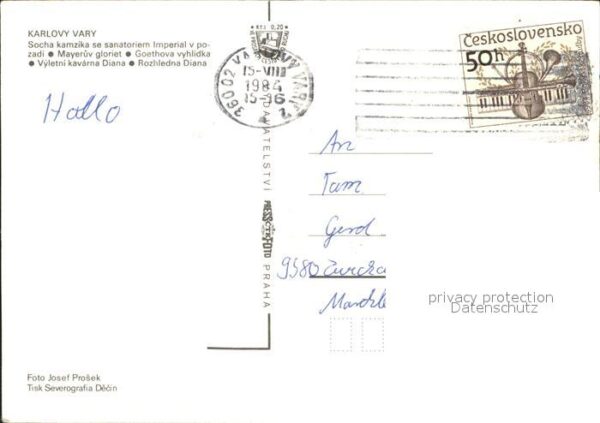 KARLOVY VARY
Socha kamzíka se sanatoriem Imperial v po-
zadí ● Mayerův gloriet ● Goethova vyhlídka
● Výletní kavárna Diana ● Rozhledna Diana
Hallo
Kčs 0,20
360 02 KARLOVY VARY 2
15-VIII
1984
15-16
Československo
50h
VYDAVATELSTVÍ PRESSFOTO PRAHA
An
Fam
Gerd
9580
privacy protection
Datenschutz
Foto Josef Prošek
Tisk Severografia Děčín